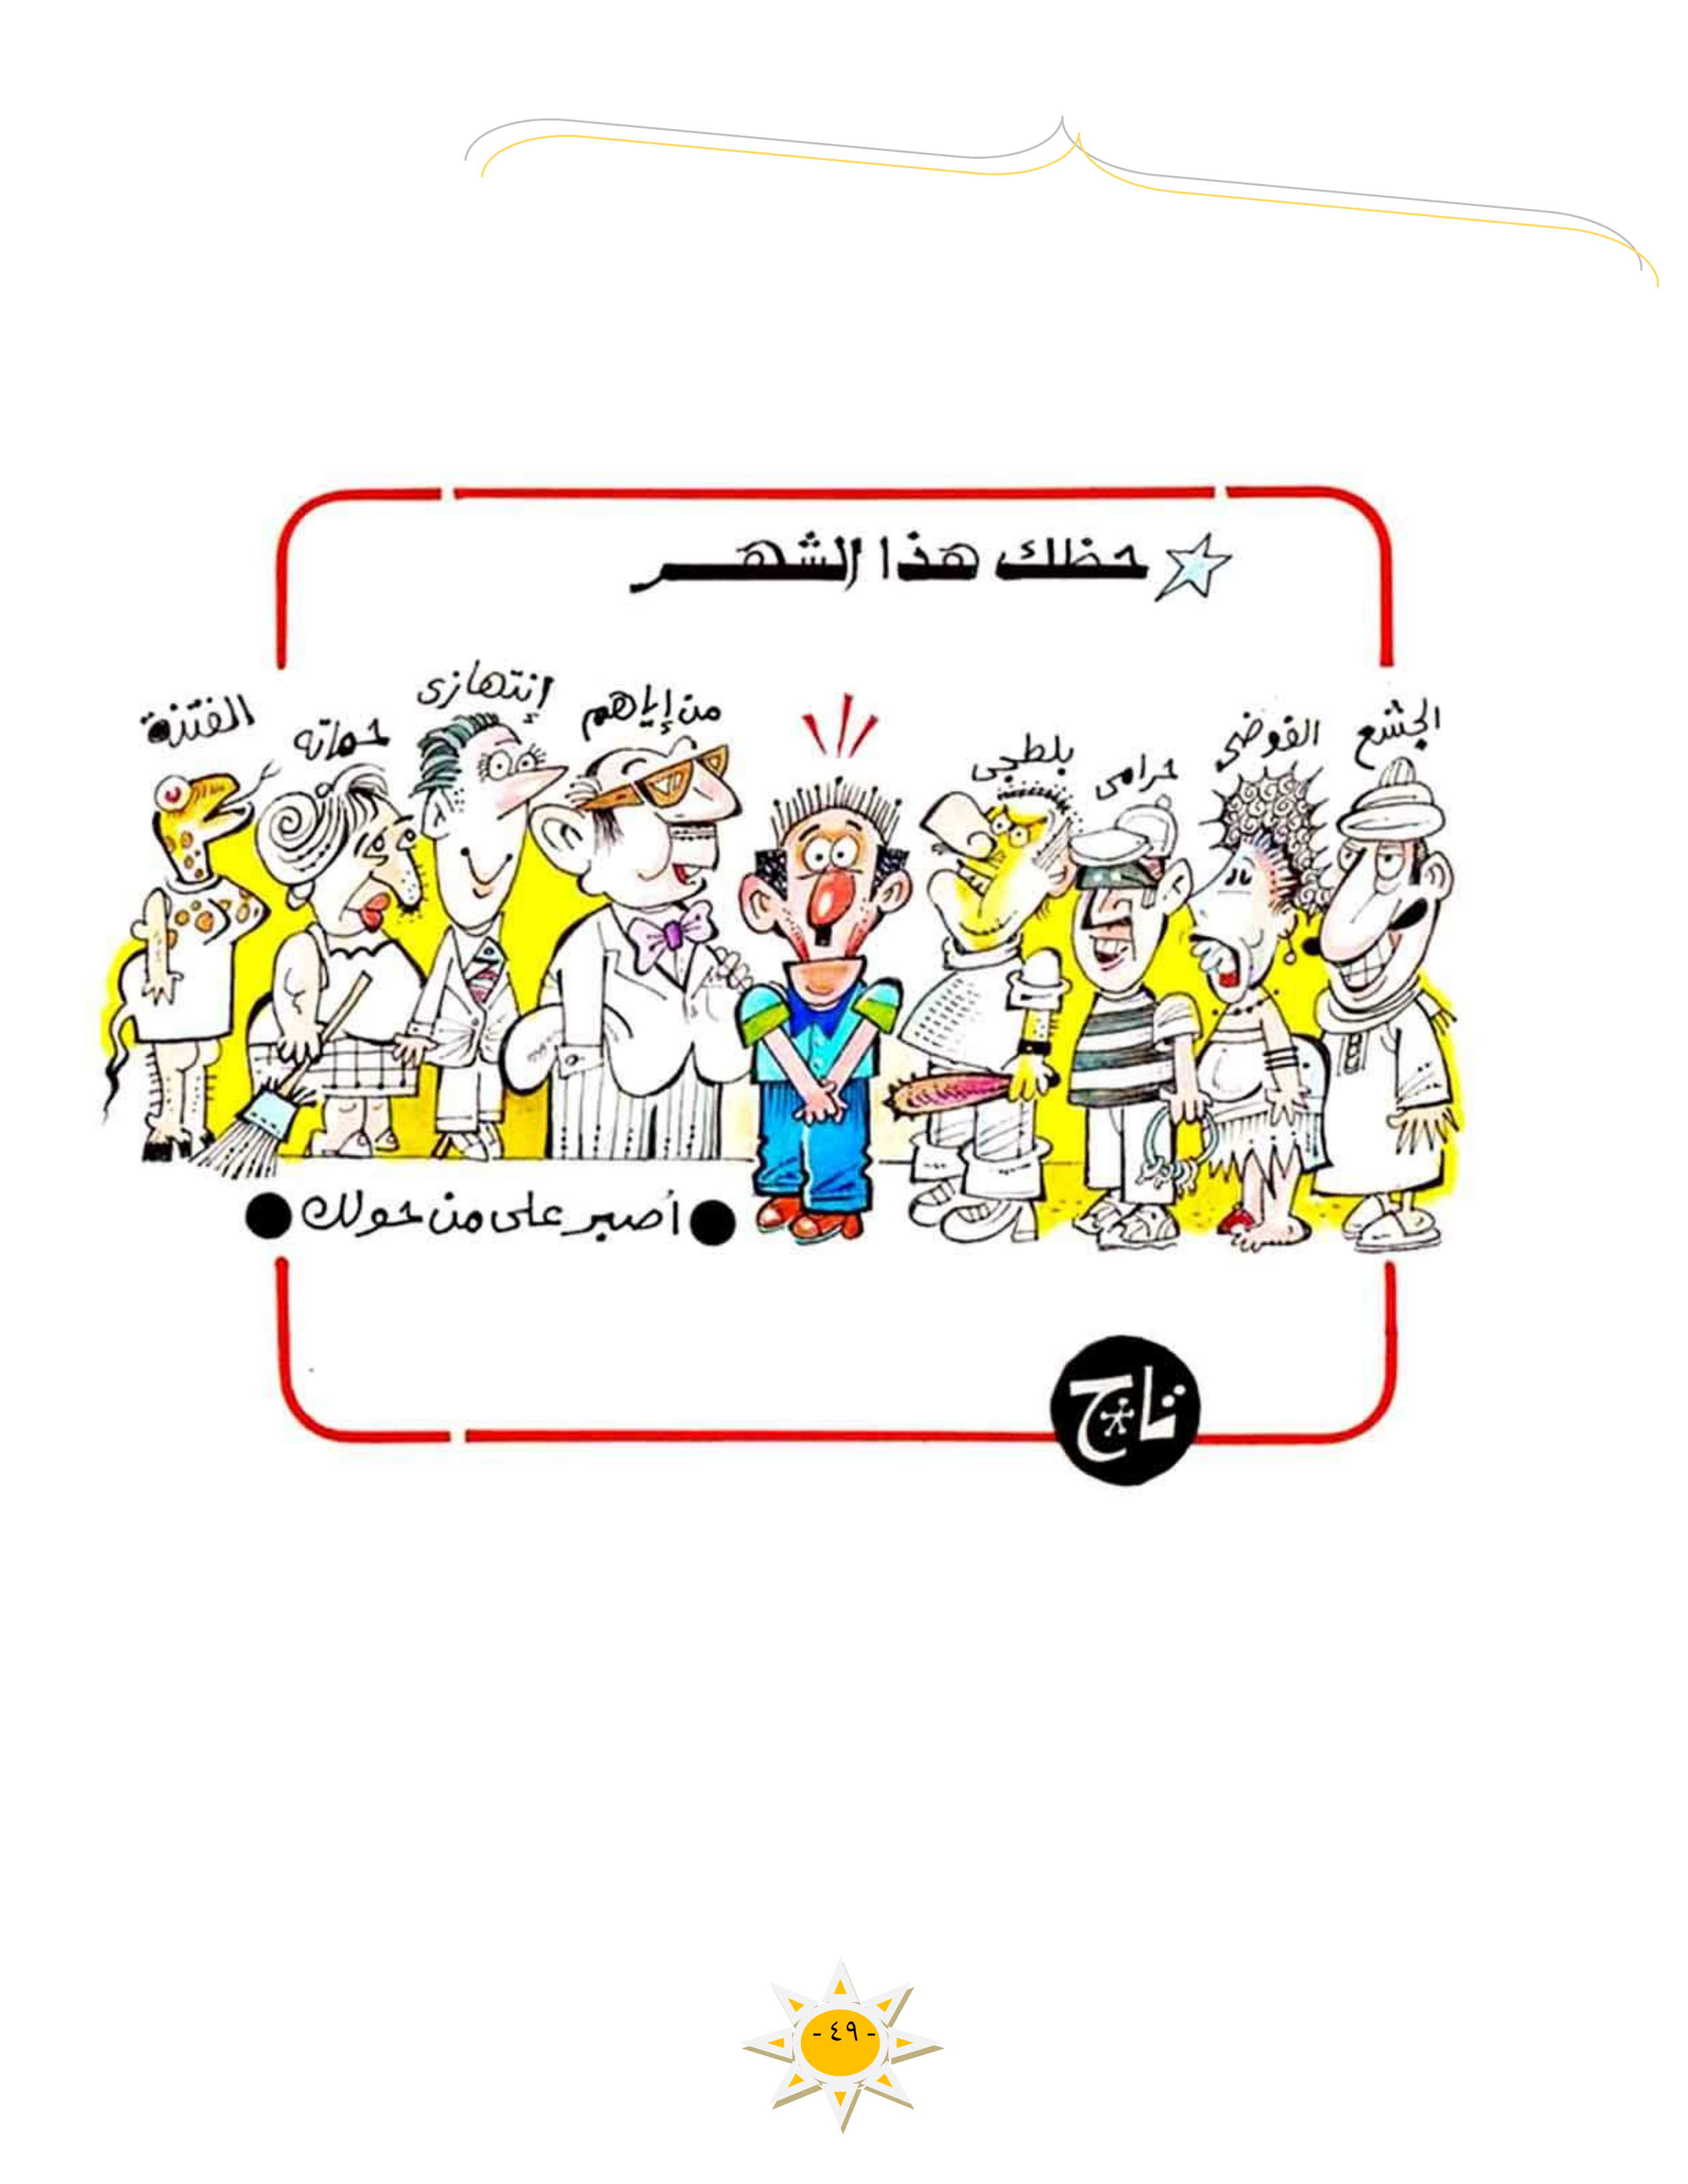 حظك هذا الشهر
الجشع
الفوضى
حرامى
بلطجى
من إياهم
إنتهازى
حماته
الفتنة
أصبر على من حولك
تاج
- ٤٩ -